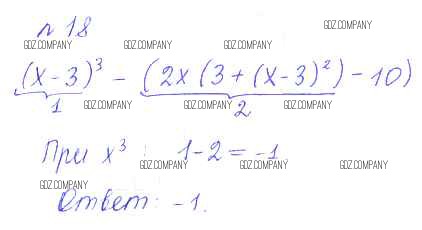 n 18
GDZ.COMPANY
GDZ.COMPANY GDZ.COMPANY GDZ.COMPANY
(x-3)³ - (2x(3+(x-3)²)-10)
1 GDZ.COMPANY GDZ.COMPANY 2 GDZ.COMPANY
При x³: 1-2=-1
GDZ.COMPANY GDZ.COMPANY GDZ.COMPANY
GDZ.COMPANY
Ответ: -1.